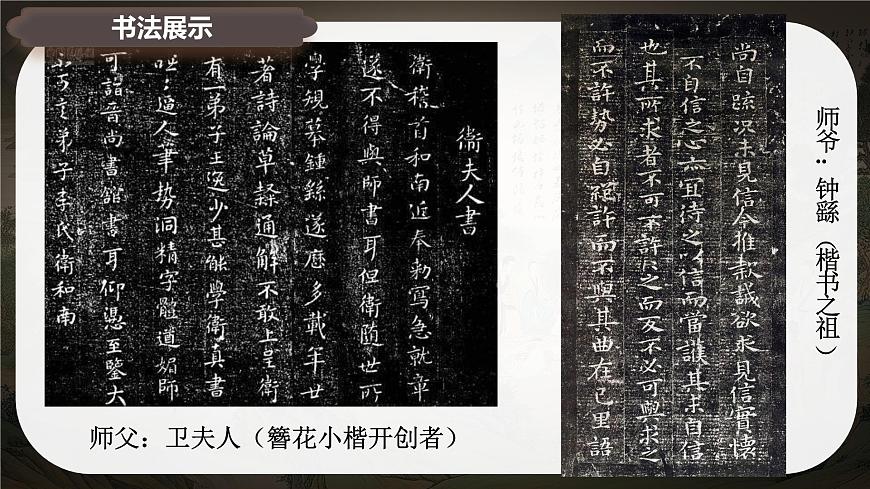 书法展示
衛夫人書
衛稽首和南近奉勅寫急就章
遂不得與師書耳但衛随世所
學規摹鍾繇遂歷多載年廿
著詩論草隸通解不敢上呈衛
有一弟子王逸少甚能學衛真書
咄咄逼人筆勢洞精字體遒媚師
可詣晉尚書館書耳仰憑至鑒大
弟子李氏衛和南
师父：卫夫人（簪花小楷开创者）
尚自疏况未見信今推款誠欲求見信實懷
不自信之心亦宜待之以信而當護其未自信
也其所求者不可不許之而反不必可與求之
而不許勢必自絕許而不與其曲在己里語
师爷：钟繇（楷书之祖）